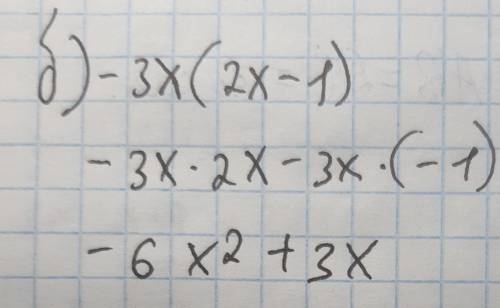 б) - 3x(2x - 1)
- 3x · 2x - 3x · (-1)
- 6x² + 3x